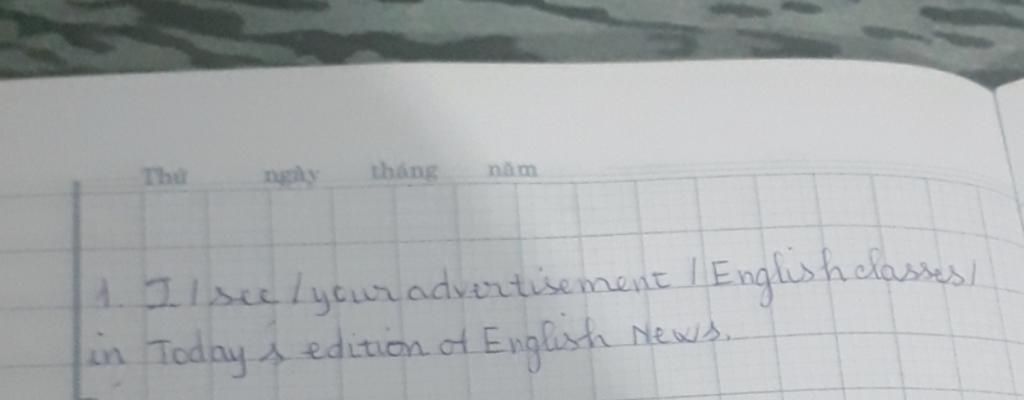 Thứ ngày tháng năm
1. I / see / your advertisement / English classes /
in Today's edition of English News.